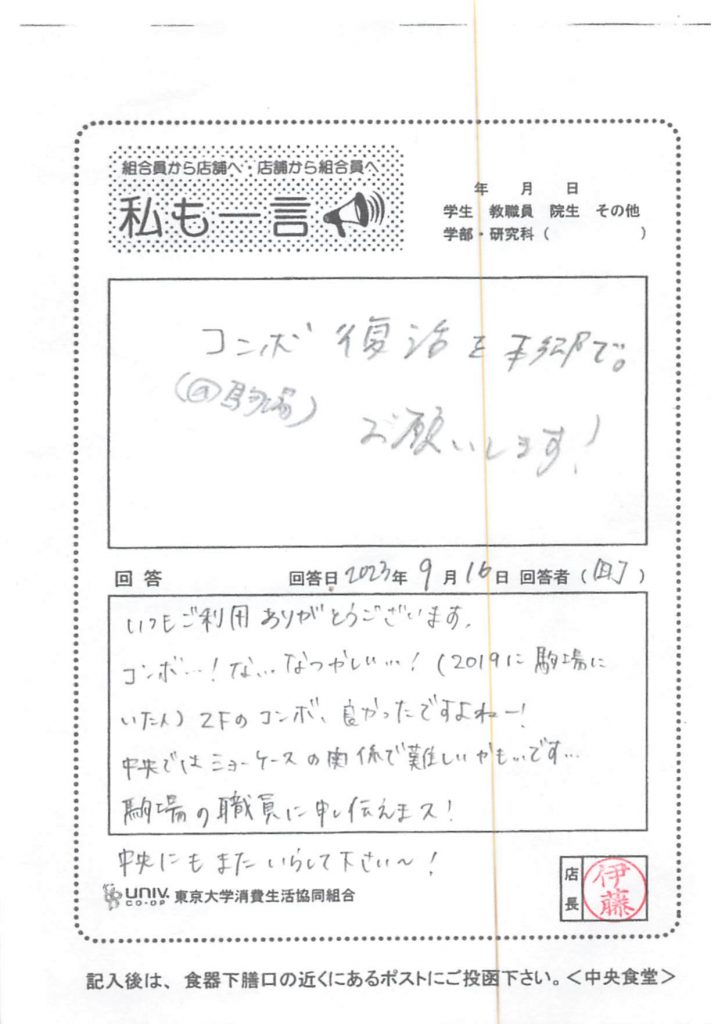 組合員から店舗へ 店舗から組合員へ
私も一言
年 月 日
学生 教職員 院生 その他
学部・研究科( )
コンボ 復活を本郷で。
(@駒場)
お願いします!
回答 回答日2023年9月16日 回答者( )
いつもご利用ありがとうございます。
コンボ…!な、、なつかしい…!(2019に駒場に
いた人)2Fのコンボ、良かったですよねー!
中央ではショーケースの関係で難しいかも…です…
駒場の職員に申し伝えまス!
中央にもまたいらして下さい〜!
UNIV. CO-OP 東京大学消費生活協同組合
店長 伊藤
記入後は、食器下膳口の近くにあるポストにご投函下さい。<中央食堂>